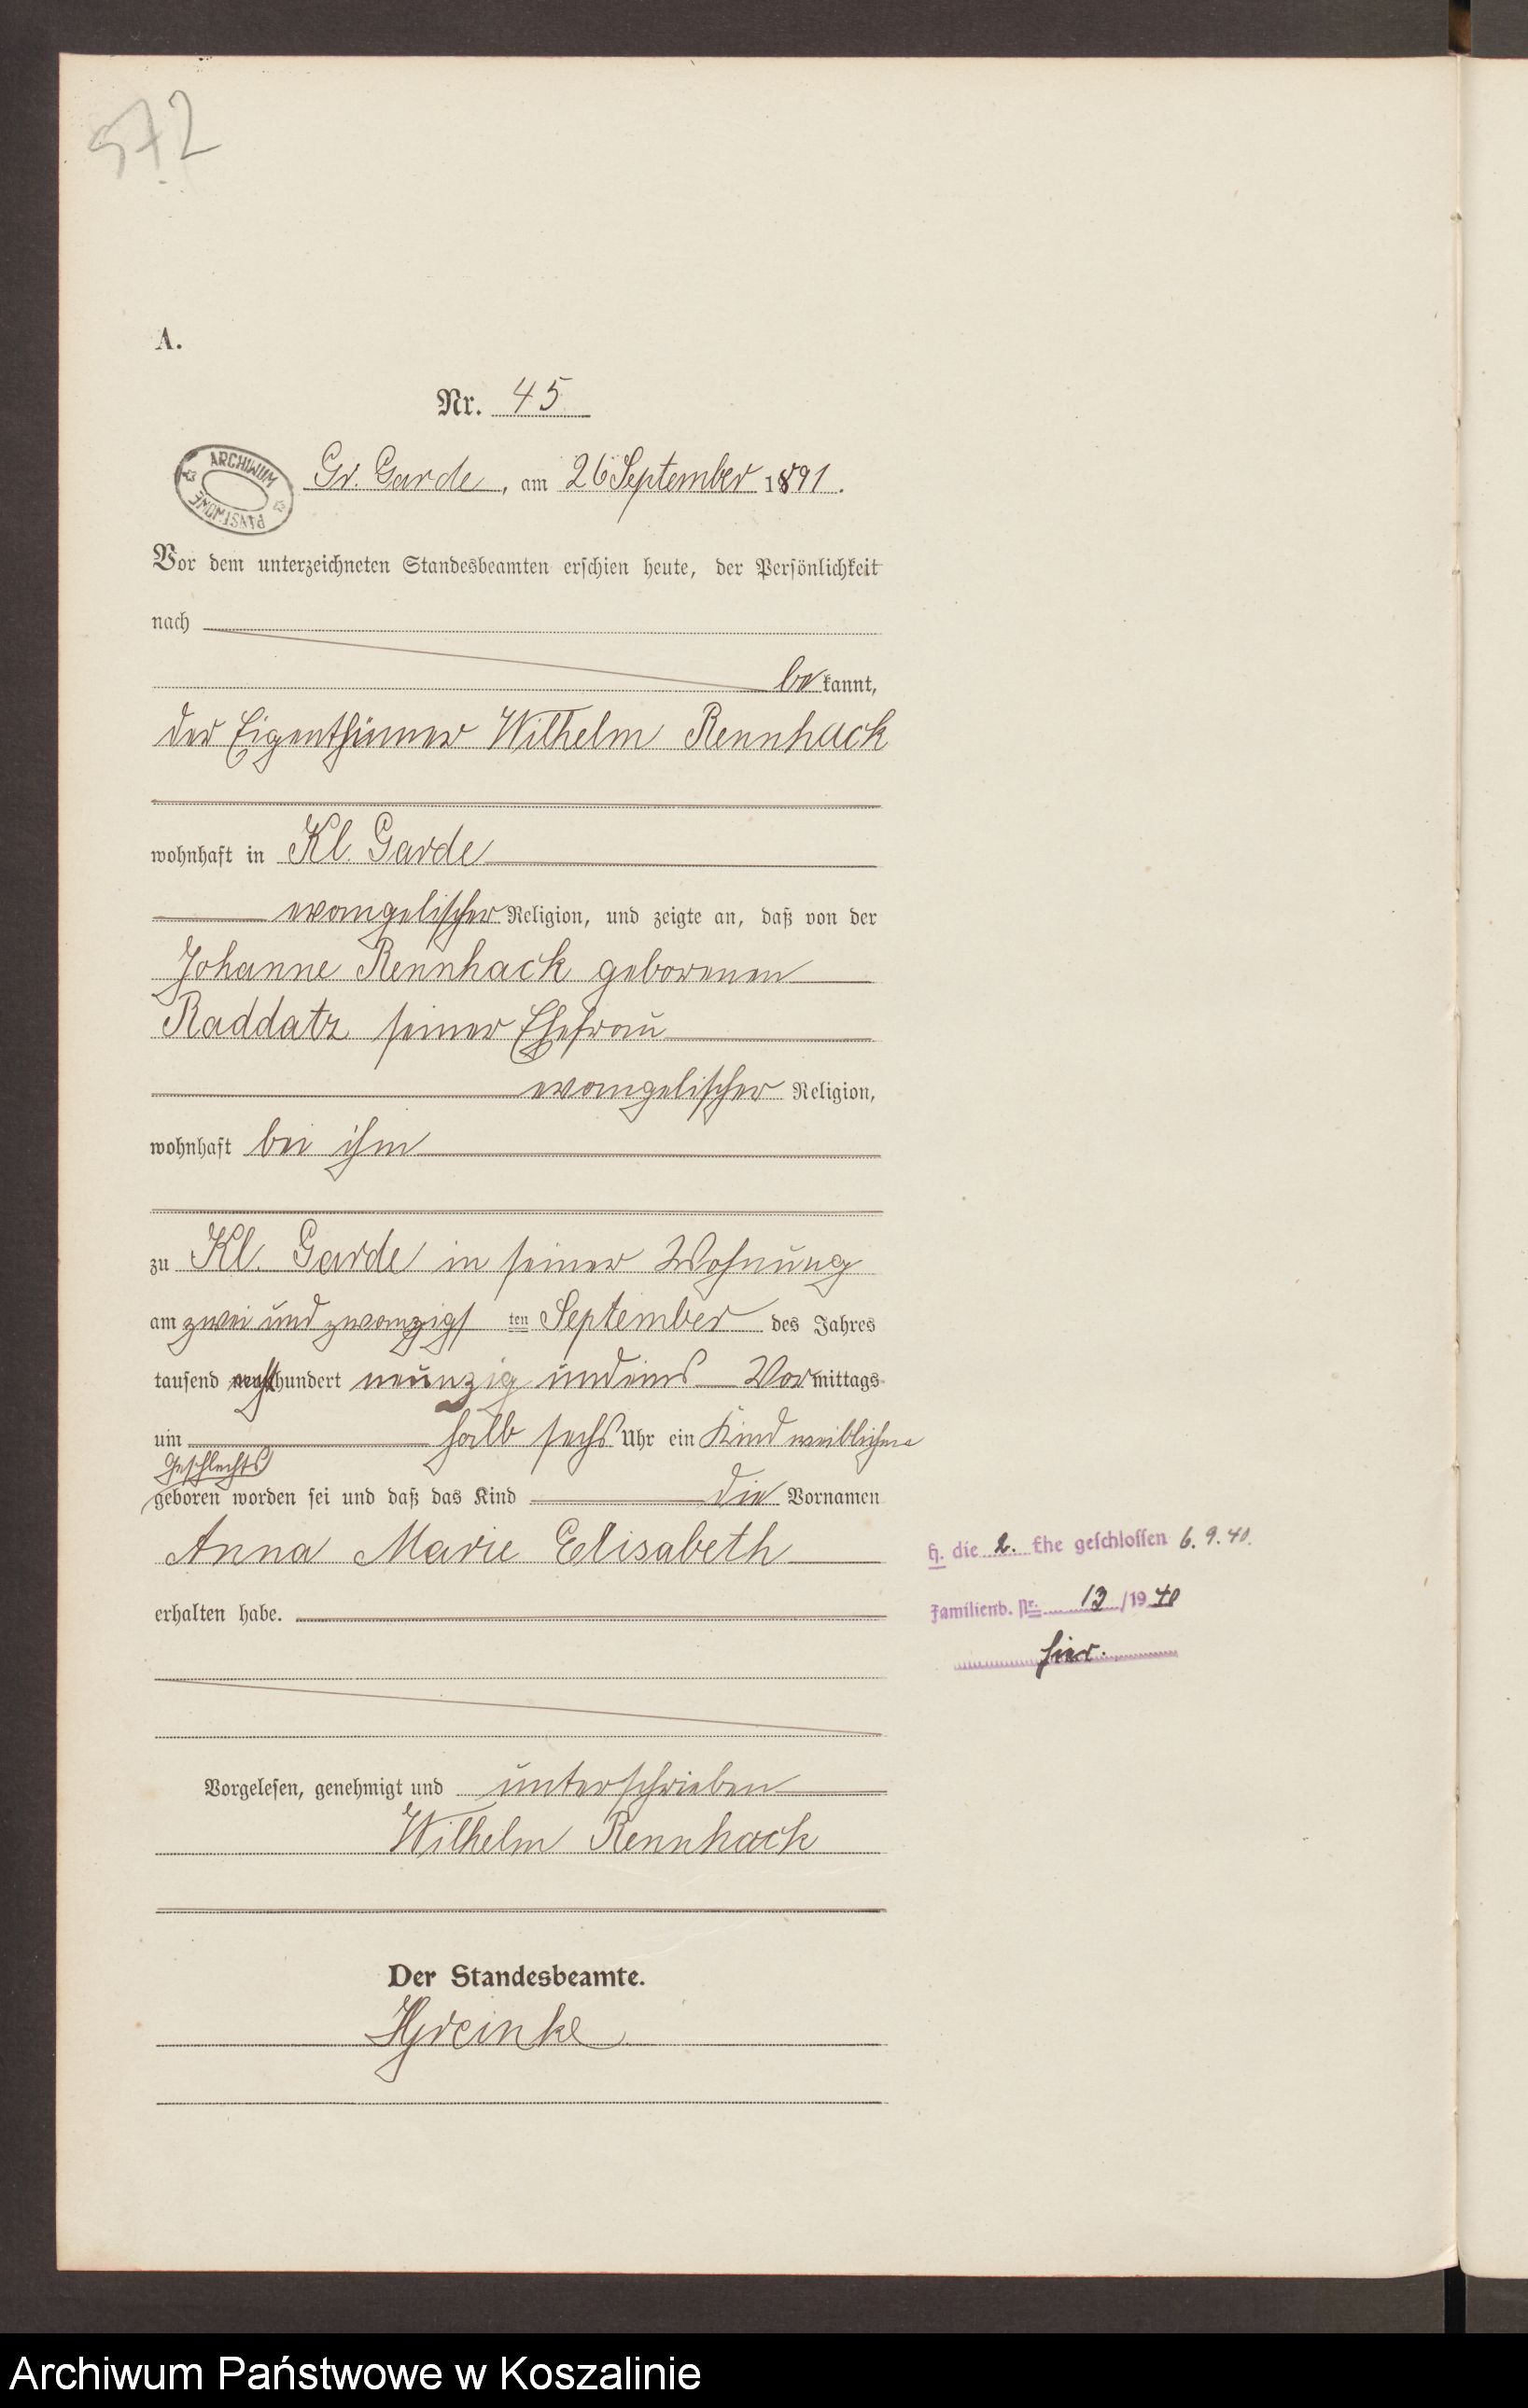 572
A.
Nr. 45
ARCHIWUM PAŃSTWOWE
Gr. Garde, am 26 September 1891.
Vor dem unterzeichneten Standesbeamten erschien heute, der Persönlichkeit
nach
bekannt,
der Eigenthümer Wilhelm Rennhack
wohnhaft in Kl. Garde
evangelischer Religion, und zeigte an, daß von der
Johanne Rennhack geborenen
Raddatz seiner Ehefrau
evangelischer Religion,
wohnhaft bei ihm
zu Kl. Garde in seiner Wohnung
am zwei und zwanzigsten September des Jahres
tausend hundert neunzig und eins Vormittags
um halb sechs Uhr ein Kind weiblichen
Geschlechts
geboren worden sei und daß das Kind die Vornamen
Anna Marie Elisabeth
h. die 2. Ehe geschlossen 6.9.40.
erhalten habe.
Familienb. Nr. 13/1940
hier.
Vorgelesen, genehmigt und unterschrieben
Wilhelm Rennhack
Der Standesbeamte.
Archiwum Państwowe w Koszalinie